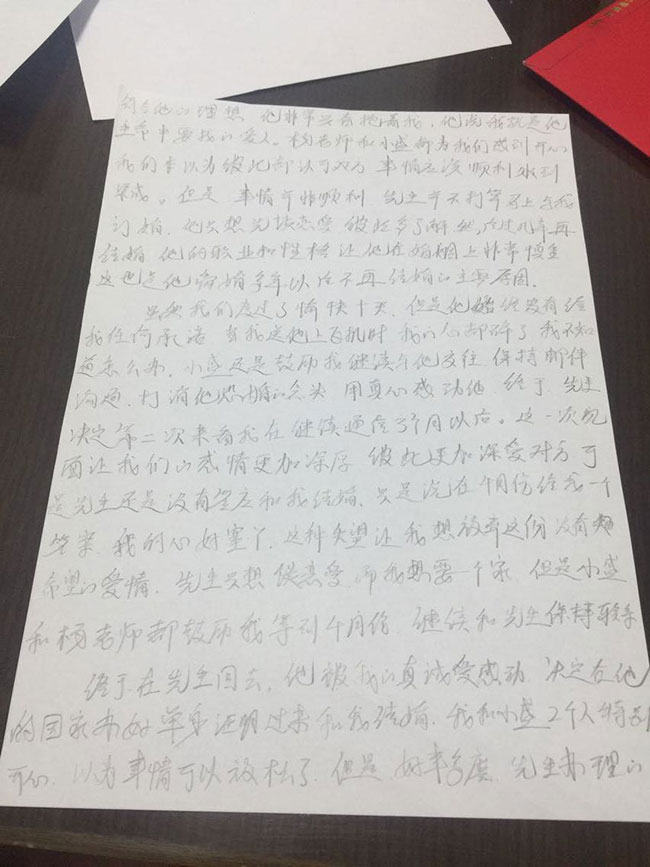 符合他的理想，他非常兴奋抱着我，他说我就是他
生命中要找的爱人。杨老师和小盛都为我们感到开心
我们本以为彼此都认可双方 事情应该顺利水到
渠成。但是 事情并非顺利 先生并不打算马上与我
订婚，他只想先谈恋爱 彼此多了解 然后过几年再
结婚 他的职业和性格让他在婚姻上非常慎重
这也是他离婚多年以后不再结婚的主要原因。
虽然我们度过了愉快十天，但是他始终没有给
我任何承诺 当我送他上飞机时 我的心都碎了 我不知
道怎么办，小盛还是鼓励我继续与他交往 保持邮件
沟通，打消他恐婚的念头 用真心感动他 终于，先生
决定第二次来看我在继续通信3个月以后。这一次见
面让我们的感情更加深厚 彼此更加深爱对方 可
是先生还是没有答应和我结婚，只是说在 个月份给我一个
答案，我的心好塞了，这种失望让我想放弃这份没有
希望的爱情，先生只想谈恋爱 而我想要一个家，但是小盛
和杨老师都鼓励我等到 个月份，继续和先生保持联系
终于在先生回去，他被我的真诚爱感动，决定在他
的国家办好单身证明过来和我结婚，我和小盛2个人特别
开心，以为事情可以放松了，但是，好事多磨，先生办理的